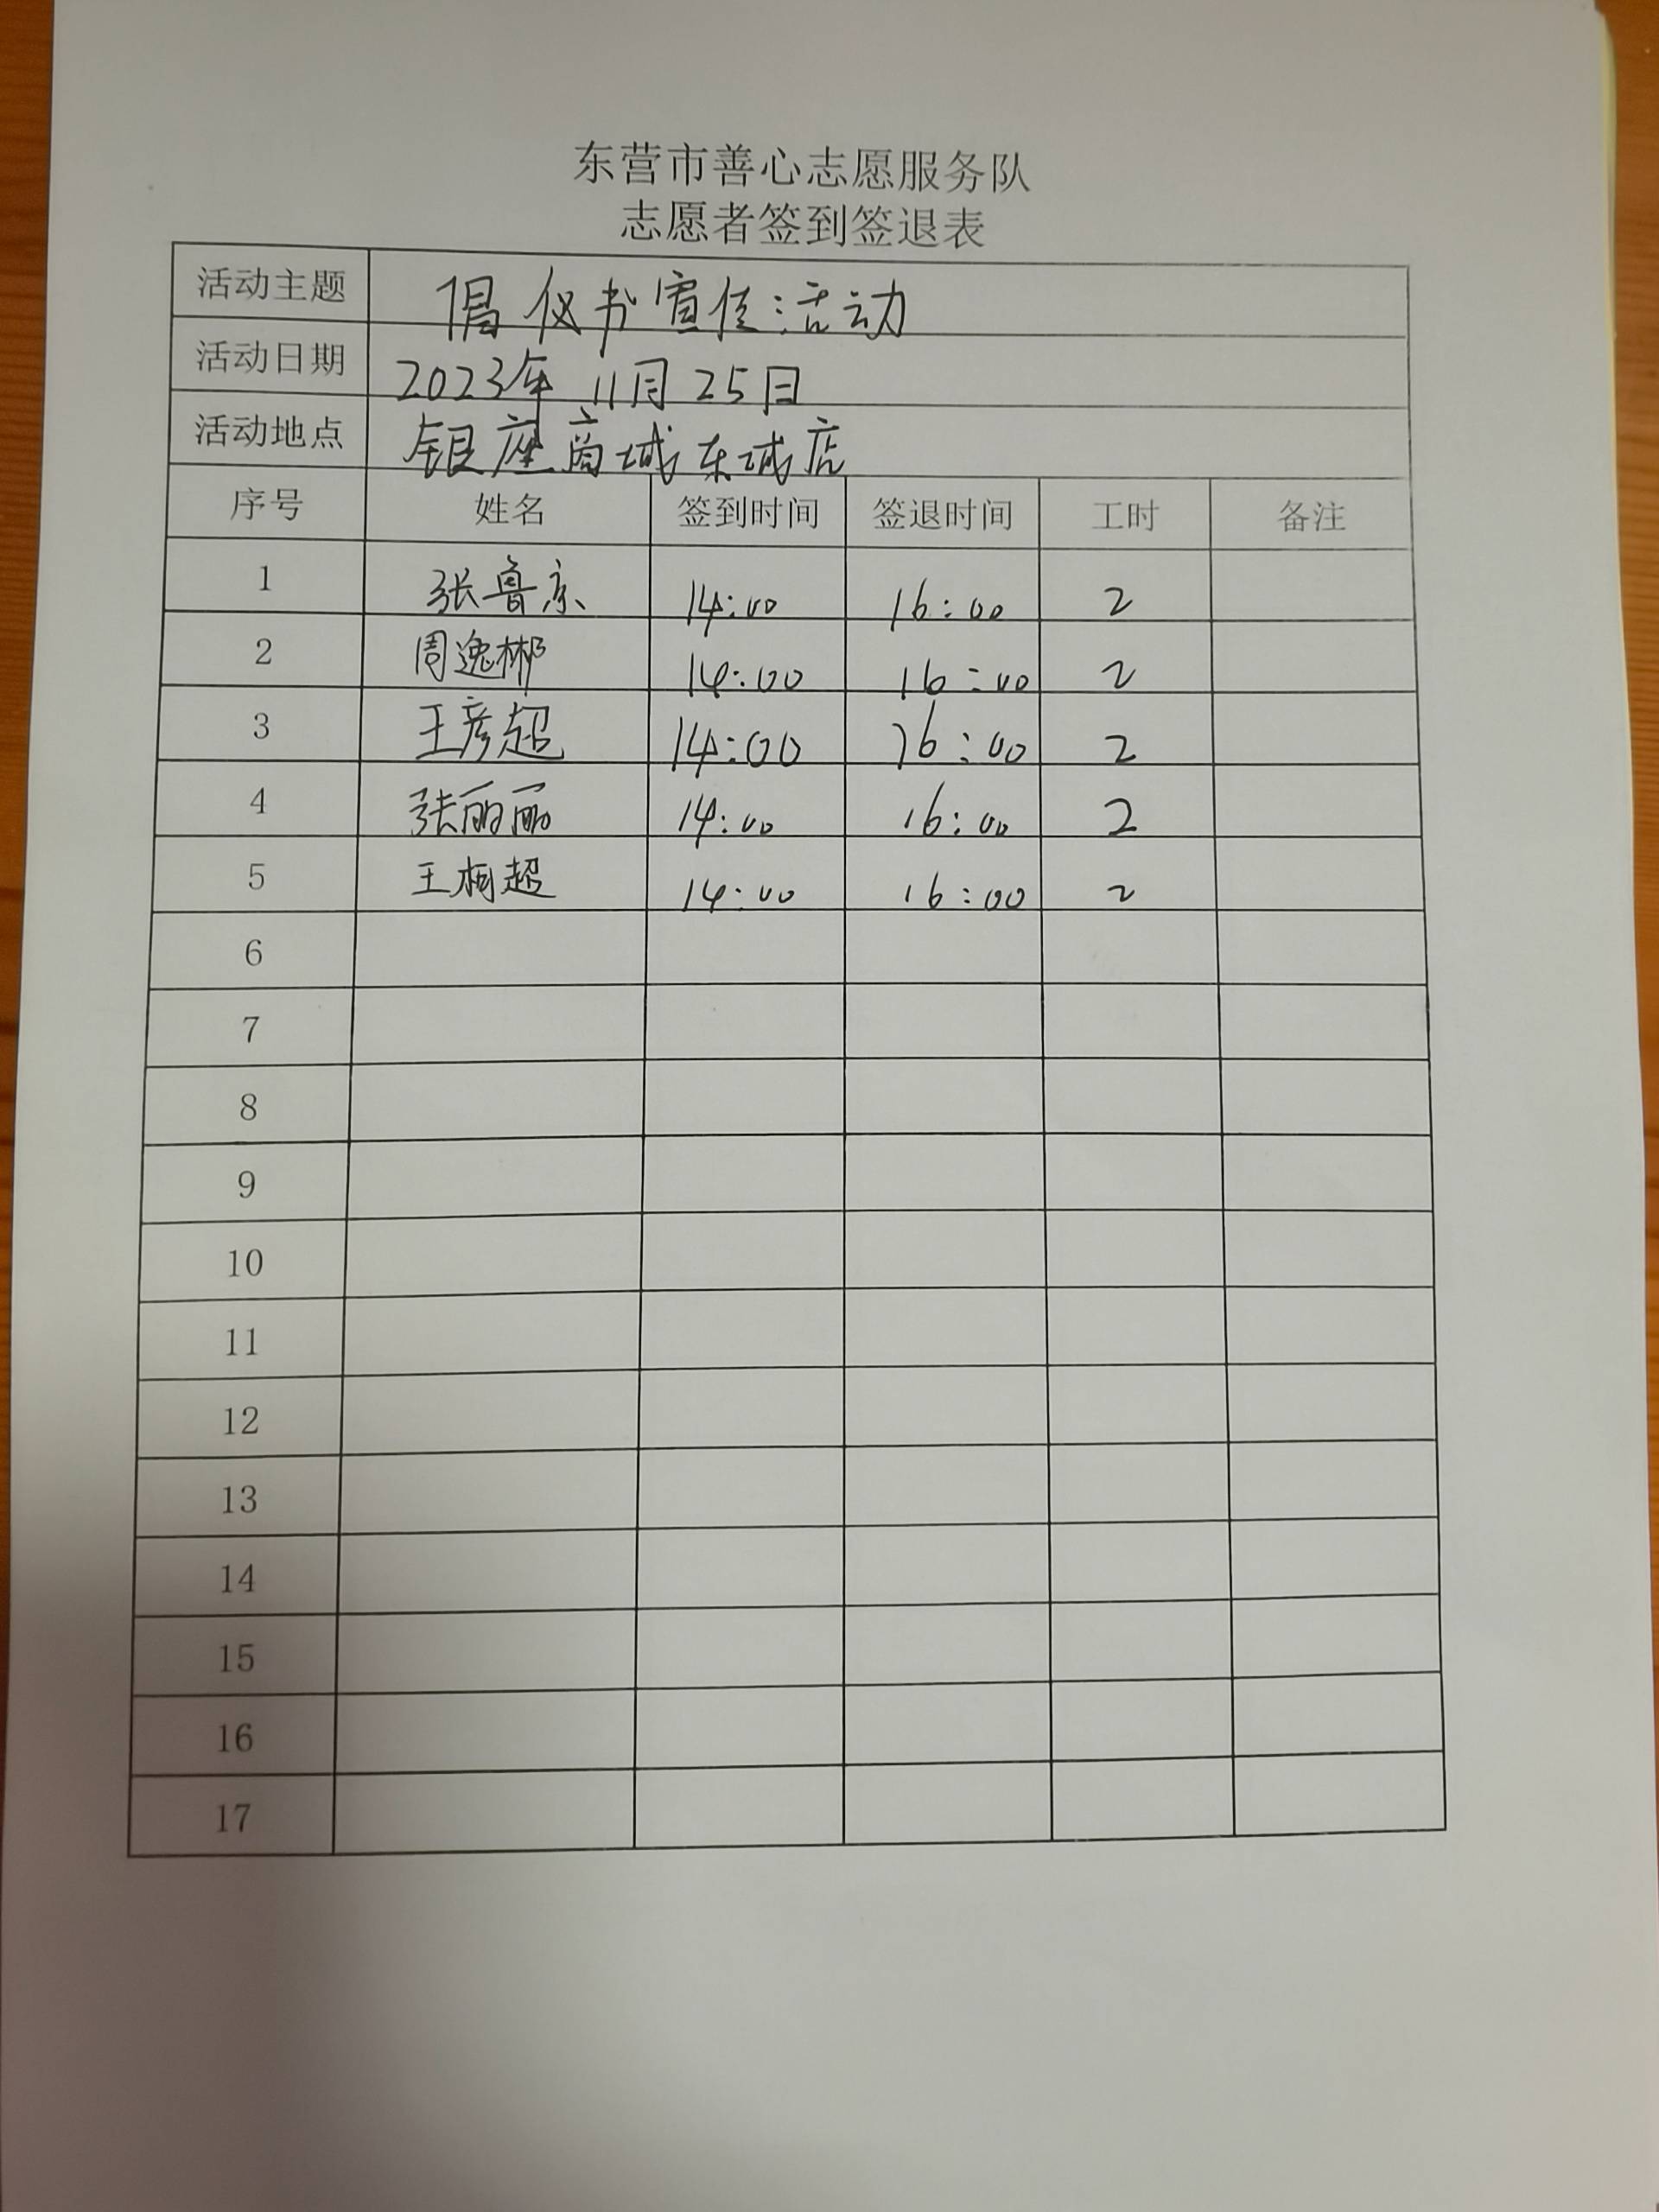 东营市善心志愿服务队
志愿者签到签退表
活动主题 倡仪书宣传活动
活动日期 2023年11月25日
活动地点 银座商城东城店
序号 姓名 签到时间 签退时间 工时 备注
1 张鲁京 14:00 16:00 2
2 周逸彬 14:00 16:00 2
3 王彦超 14:00 16:00 2
4 张丽丽 14:00 16:00 2
5 王柯超 14:00 16:00 2
6
7
8
9
10
11
12
13
14
15
16
17